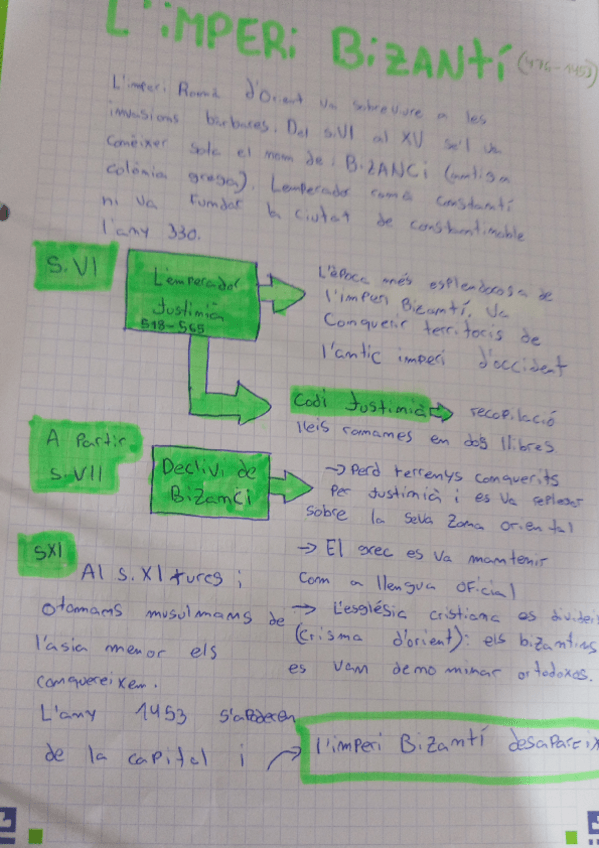 L'iMPERi BiZANTÍ (476-1453)
L'imperi Romà d'Orient va sobreviure a les
invasions bàrbares. Del s.VI al XV se'l va
conèixer sota el nom de: BiZANCi (antiga
colònia grega). L'emperador romà Constantí
ni va fundar la ciutat de constantinoble
l'any 330.
S. VI
L'emperador
Justinià
518-565
L'època més esplendorosa de
l'imperi Bizantí. Va
Conquerir territoris de
l'antic imperi d'occident
Codi Justinià → recopilació
lleis romanes en dos llibres
A Partir
s.VII
Declivi de
BiZanci
→ Perd terrenys conquerits
Per Justinià i es va replegar
sobre la seva zona oriental
→ El grec es va mantenir
com a llengua oficial
→ L'església cristiana es divideix
(Crisma d'orient): els bizantins
es van denominar ortodoxes.
SXI
Al s.XI turcs i
otomans musulmans de
l'asia menor els
conquereixen.
L'any 1453 s'apoderen
de la capital i →
l'imperi Bizantí desapareix